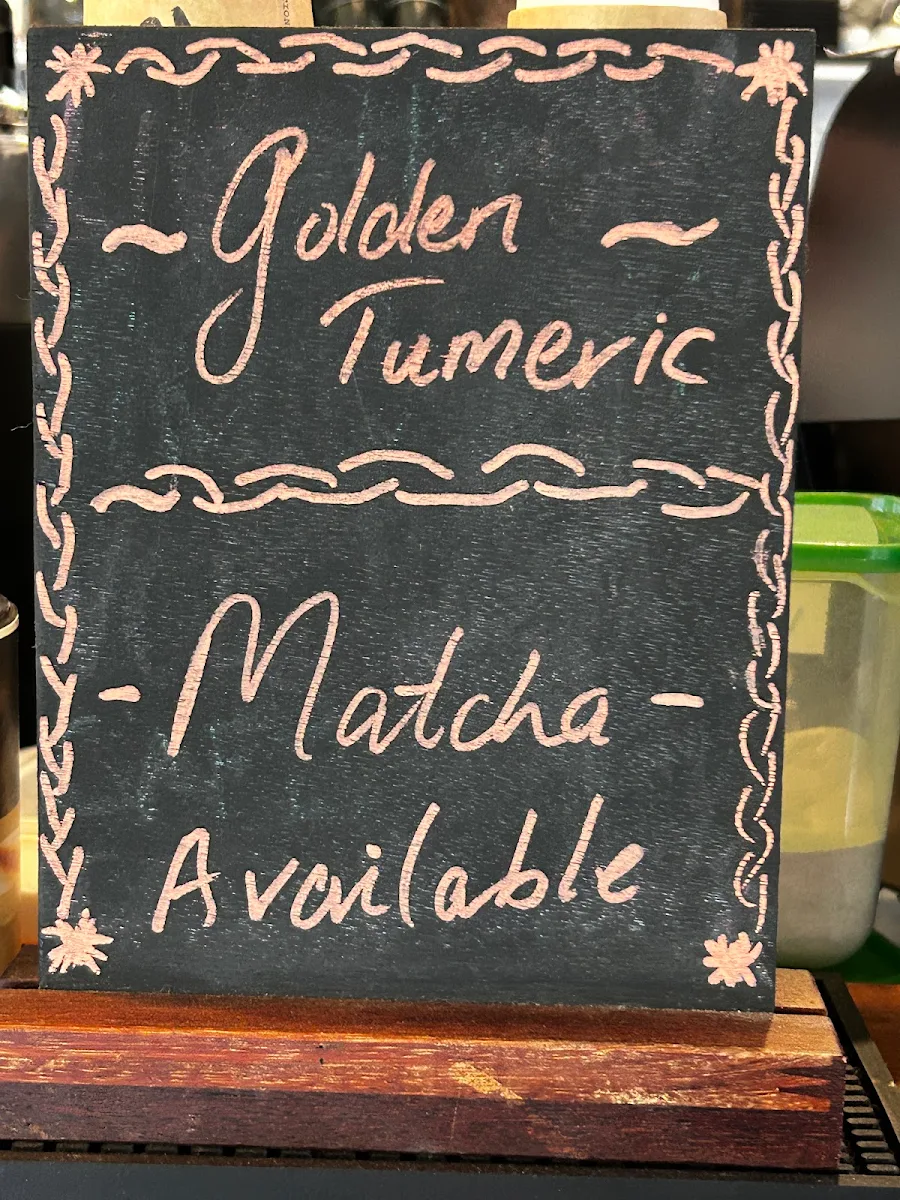 ~ Golden ~
Tumeric
- Matcha -
Available